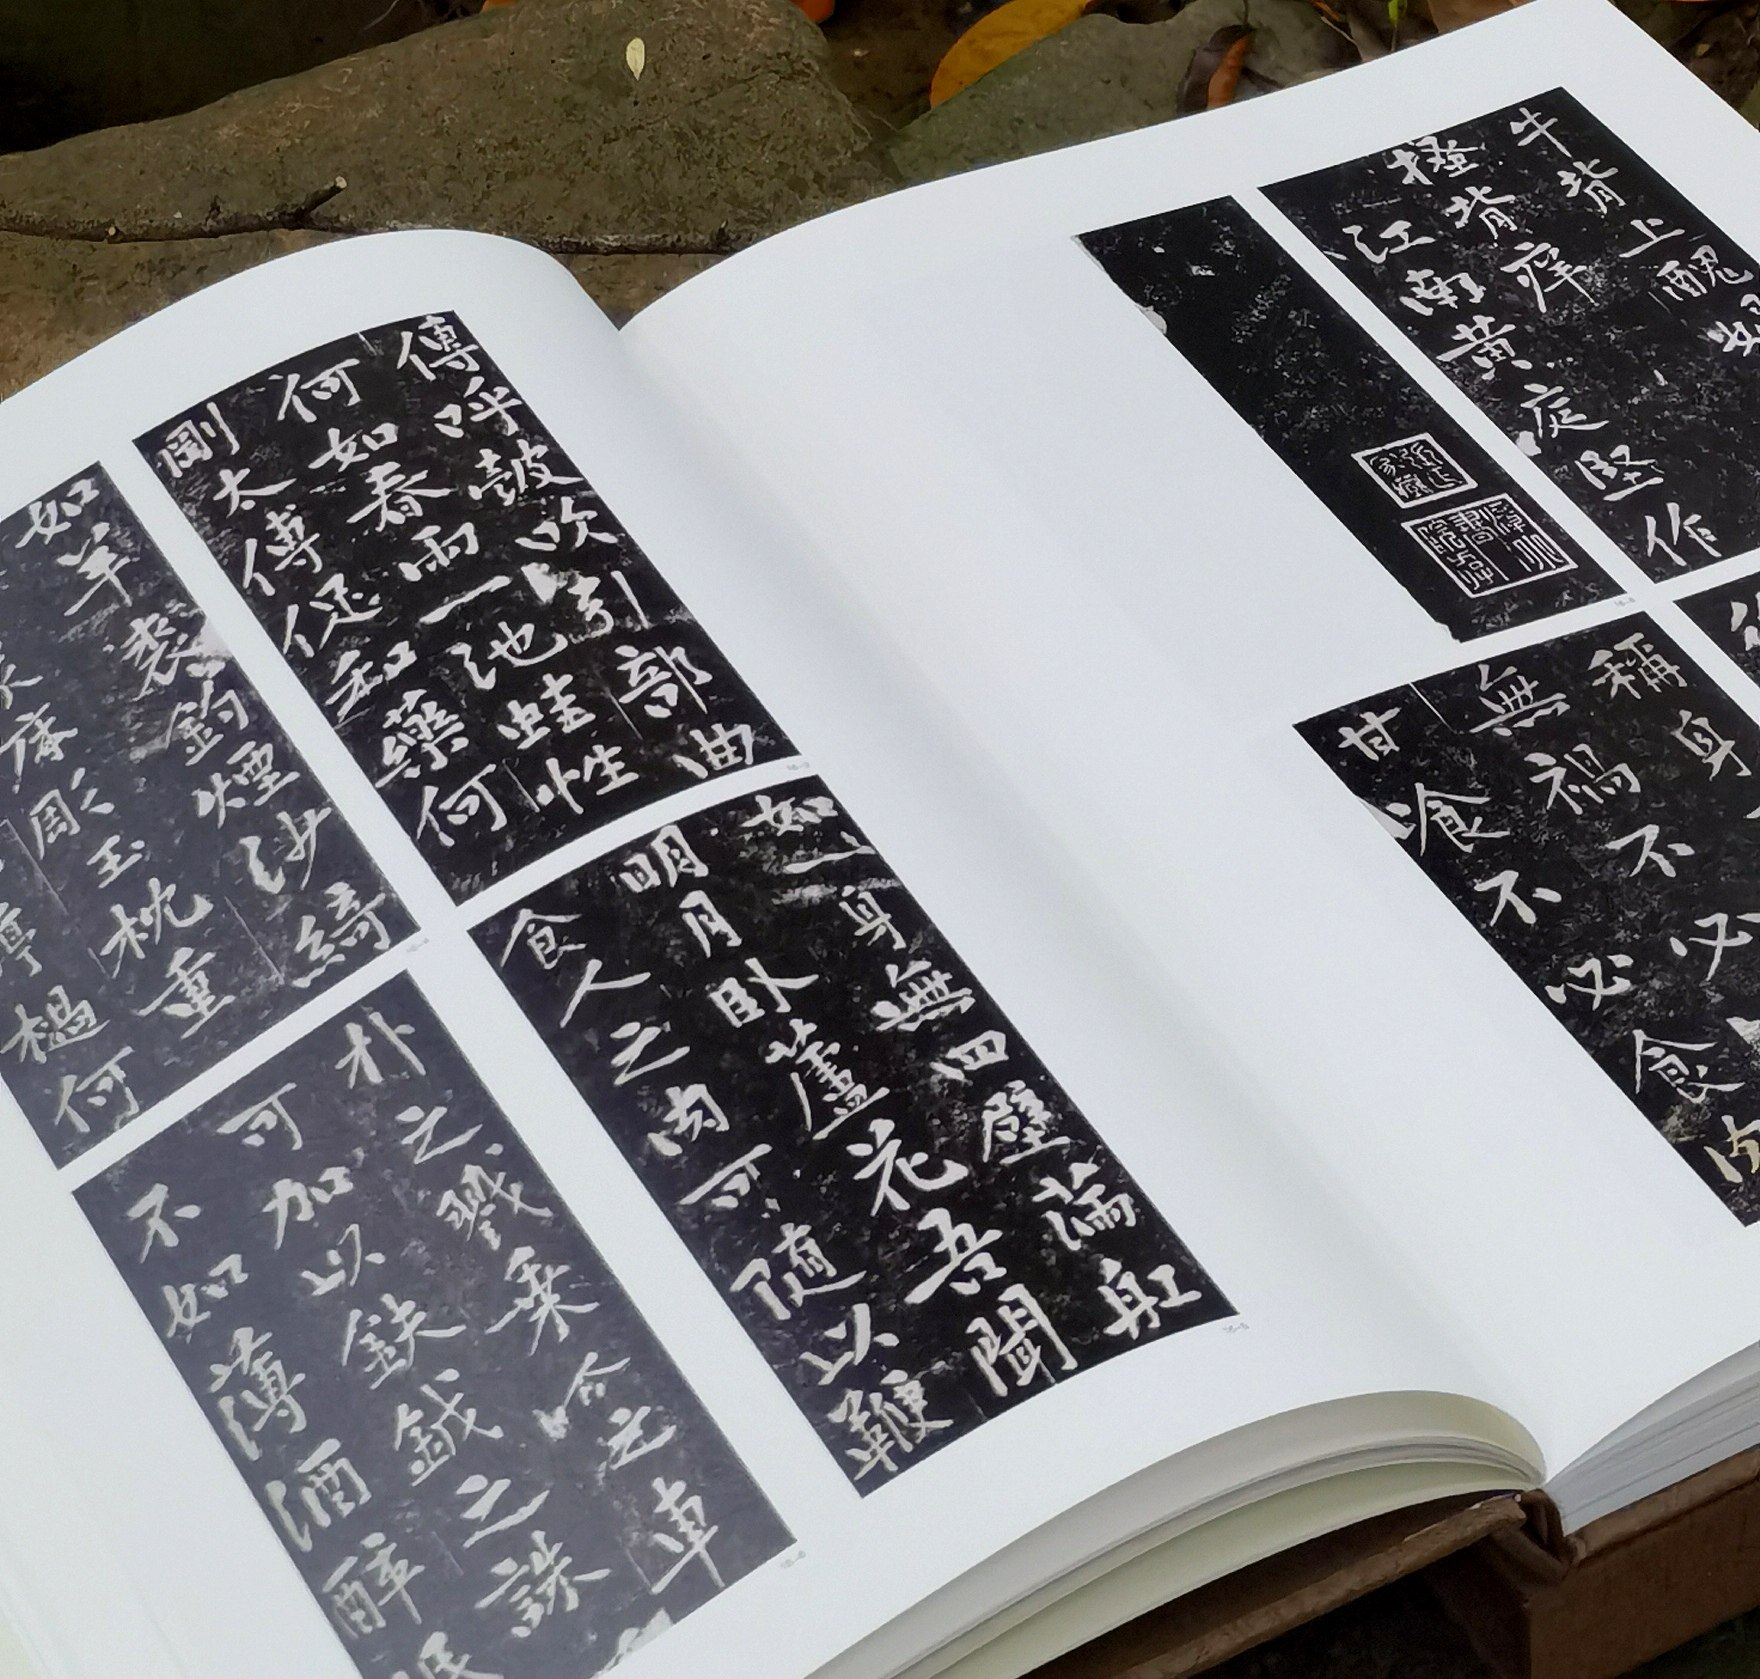 牛背上醜如
搔背痒
江南黄庭堅作
稱身
無禍不必
甘飡不必食肉
傳呼鼓吹引部曲
何如春雨一池蛙性
剛太傅促和藥何
如一身無四壁滿舡
明月臥蘆花吾聞
食人之肉可随以鞭
如羊裘釣煙沙綺
床彫玉枕重
停撾何
朴之戮乗人之車
可加以鈇鉞之誅
不如薄酒醉眠